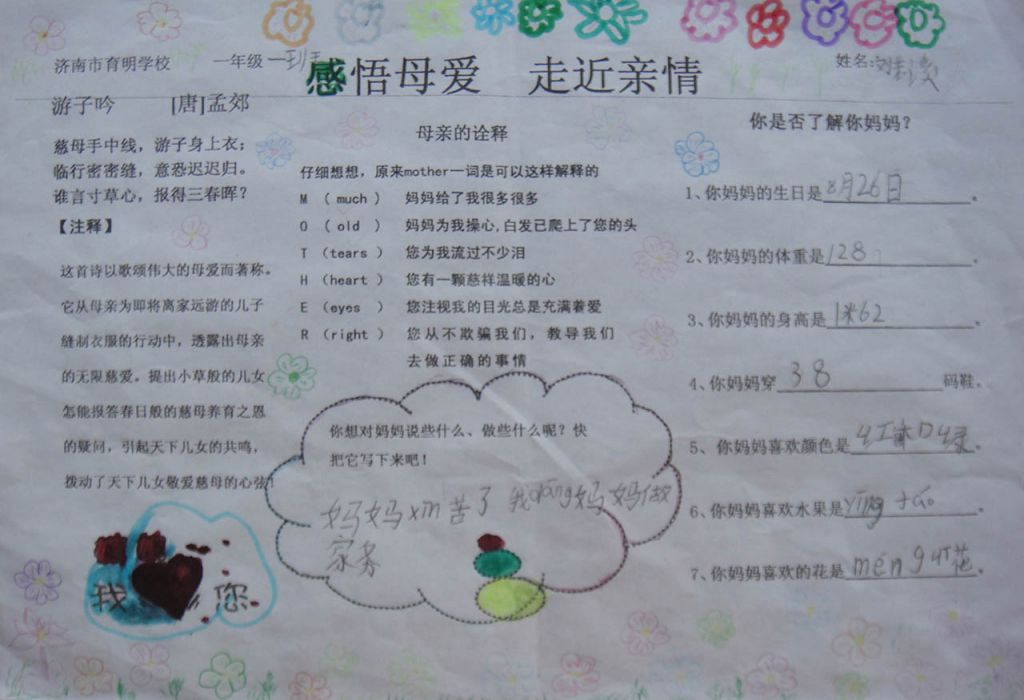 济南市育明学校 一年级一班
感悟母爱 走近亲情
姓名:刘
游子吟 [唐]孟郊
慈母手中线，游子身上衣；
临行密密缝，意恐迟迟归。
谁言寸草心，报得三春晖？
【注释】
这首诗以歌颂伟大的母爱而著称。
它从母亲为即将离家远游的儿子
缝制衣服的行动中，透露出母亲
的无限慈爱。提出小草般的儿女
怎能报答春日般的慈母养育之恩
的疑问，引起天下儿女的共鸣，
拨动了天下儿女敬爱慈母的心弦!
我 您
母亲的诠释
仔细想想，原来mother一词是可以这样解释的
M （much） 妈妈给了我很多很多
O （old ） 妈妈为我操心,白发已爬上了您的头
T （tears ） 您为我流过不少泪
H （heart ） 您有一颗慈祥温暖的心
E （eyes ） 您注视我的目光总是充满着爱
R （right） 您从不欺骗我们，教导我们
去做正确的事情
你想对妈妈说些什么、做些什么呢？快
把它写下来吧！
妈妈xin苦了 我bāng妈妈做
家务
你是否了解你妈妈？
1、你妈妈的生日是8月26日。
2、你妈妈的体重是128。
3、你妈妈的身高是1米62。
4、你妈妈穿38码鞋。
5、你妈妈喜欢颜色是红和绿。
6、你妈妈喜欢水果是
7、你妈妈喜欢的花是